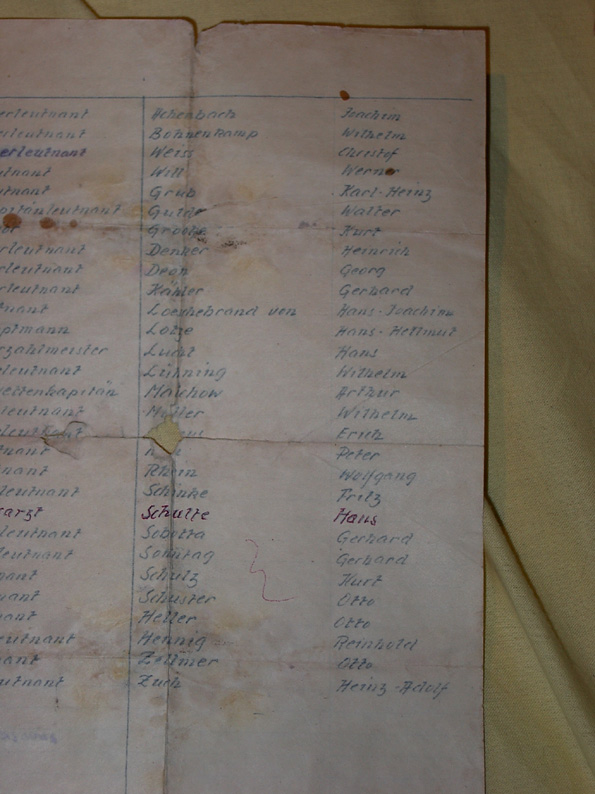 erleutnant Achenbach Joachim
erleutnant Bohnenkamp Wilhelm
erleutnant Weiss Christof
utnant Will Werner
utnant Grub Karl-Heinz
pitänleutnant Walter
Kurt
erleutnant Denker Heinrich
rleutnant Georg
rleutnant Kähler Gerhard
tnant Loeschebrand von Hans-Joachim
ptmann Lotze Hans-Hellmut
rzahlmeister Lucht Hans
leutnant Lühning Wilhelm
vettenkapitän Machow Arthur
leutnant Müller Wilhelm
leutnant Erich
tnant Peter
nant Rhein Wolfgang
leutnant Schinke Fritz
sarzt Schulte Hans
leutnant Sobotta Gerhard
leutnant Sonntag Gerhard
nant Schulz Kurt
nant Schuster Otto
nant Heller Otto
eutnant Hennig Reinhold
nant Zellmer Otto
utnant Zuch Heinz-Adolf